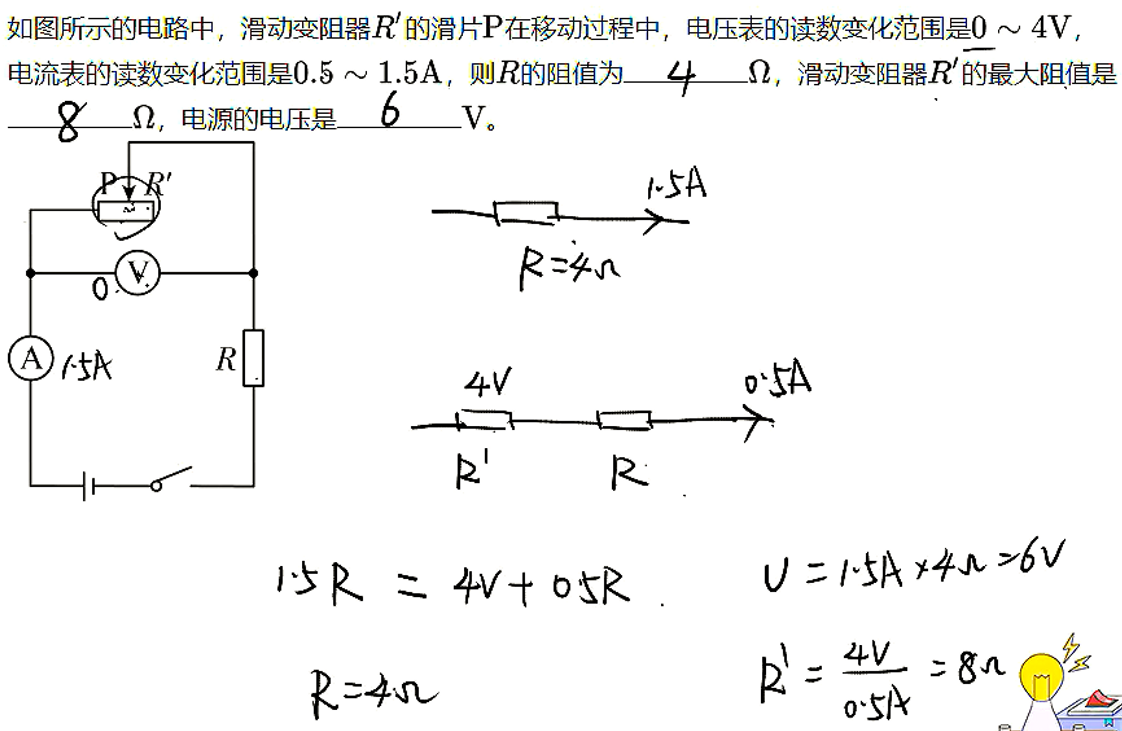 如图所示的电路中，滑动变阻器R'的滑片P在移动过程中，电压表的读数变化范围是0 ~ 4V，
电流表的读数变化范围是0.5 ~ 1.5A，则R的阻值为 4 Ω，滑动变阻器R'的最大阻值是
8 Ω，电源的电压是 6 V。
P R'
1.5A
R=4Ω
0 V
A 1.5A
R
4V 0.5A
R' R
1.5R = 4V+05R
U=1.5A×4Ω=6V
R=4Ω
R' = 4V/0.5A = 8Ω